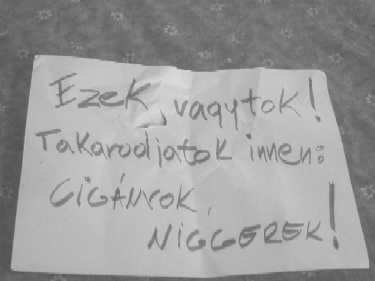 Ezek vagytok!
Takarodjatok innen:
CIGÁNYOK,
NIGGEREK!